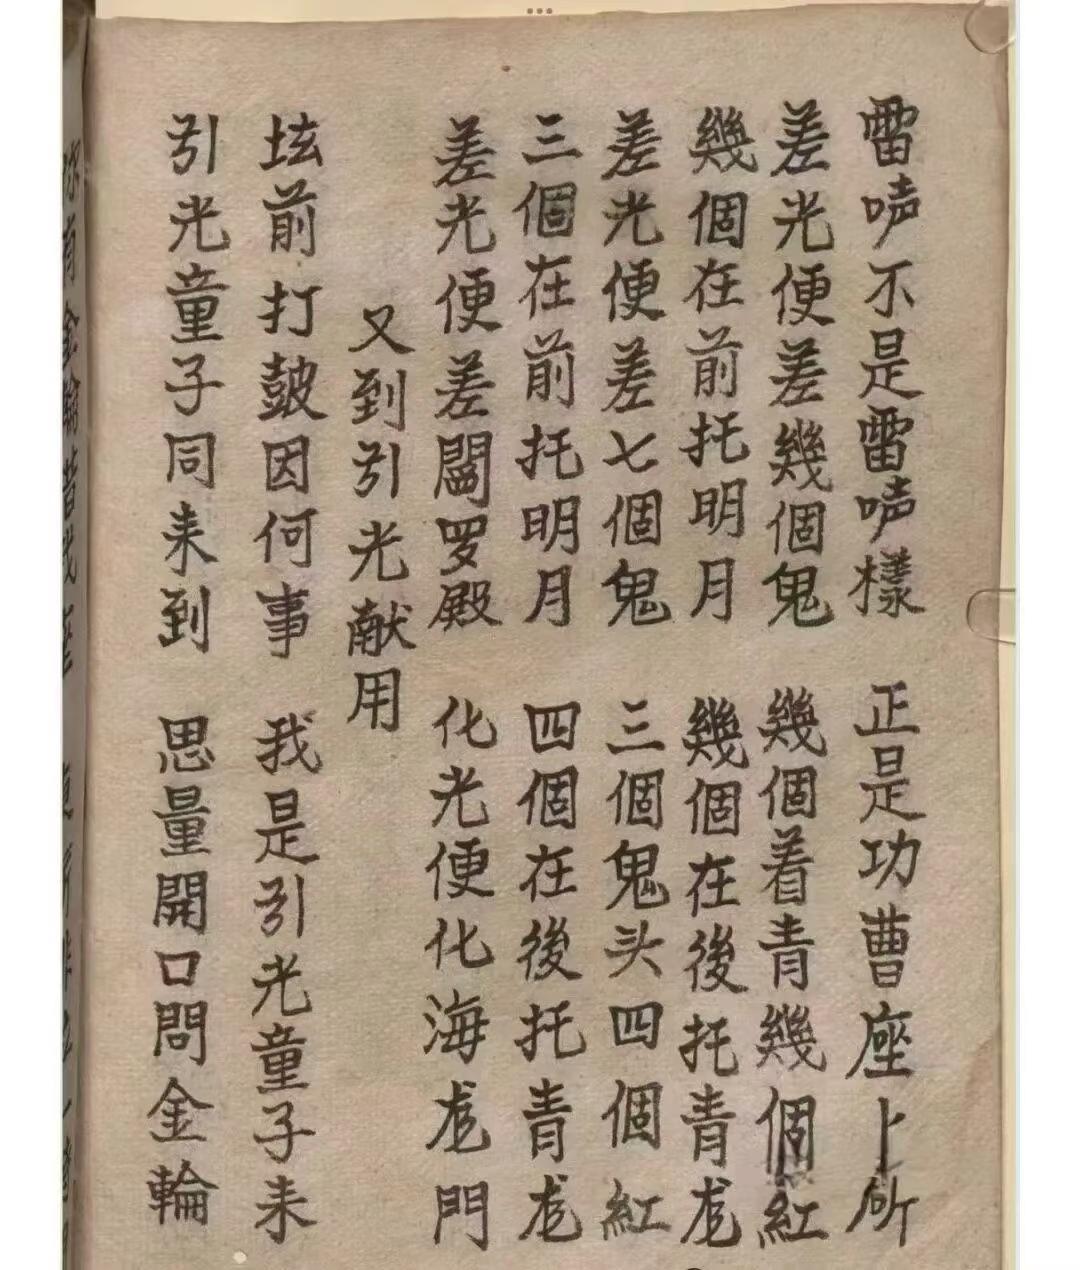 雷吪不是雷吪樣 正是功曹座卜所
差光便差幾個鬼 幾個着青幾個紅
幾個在前托明月 幾個在後托青龙
差光便差七個鬼 三個鬼头四個紅
三個在前托明月 四個在後托青龙
差光便差閻罗殿 化光便化海龙門
又到引光献用
坛前打鼓因何事 我是引光童子来
引光童子同来到 思量開口問金輪